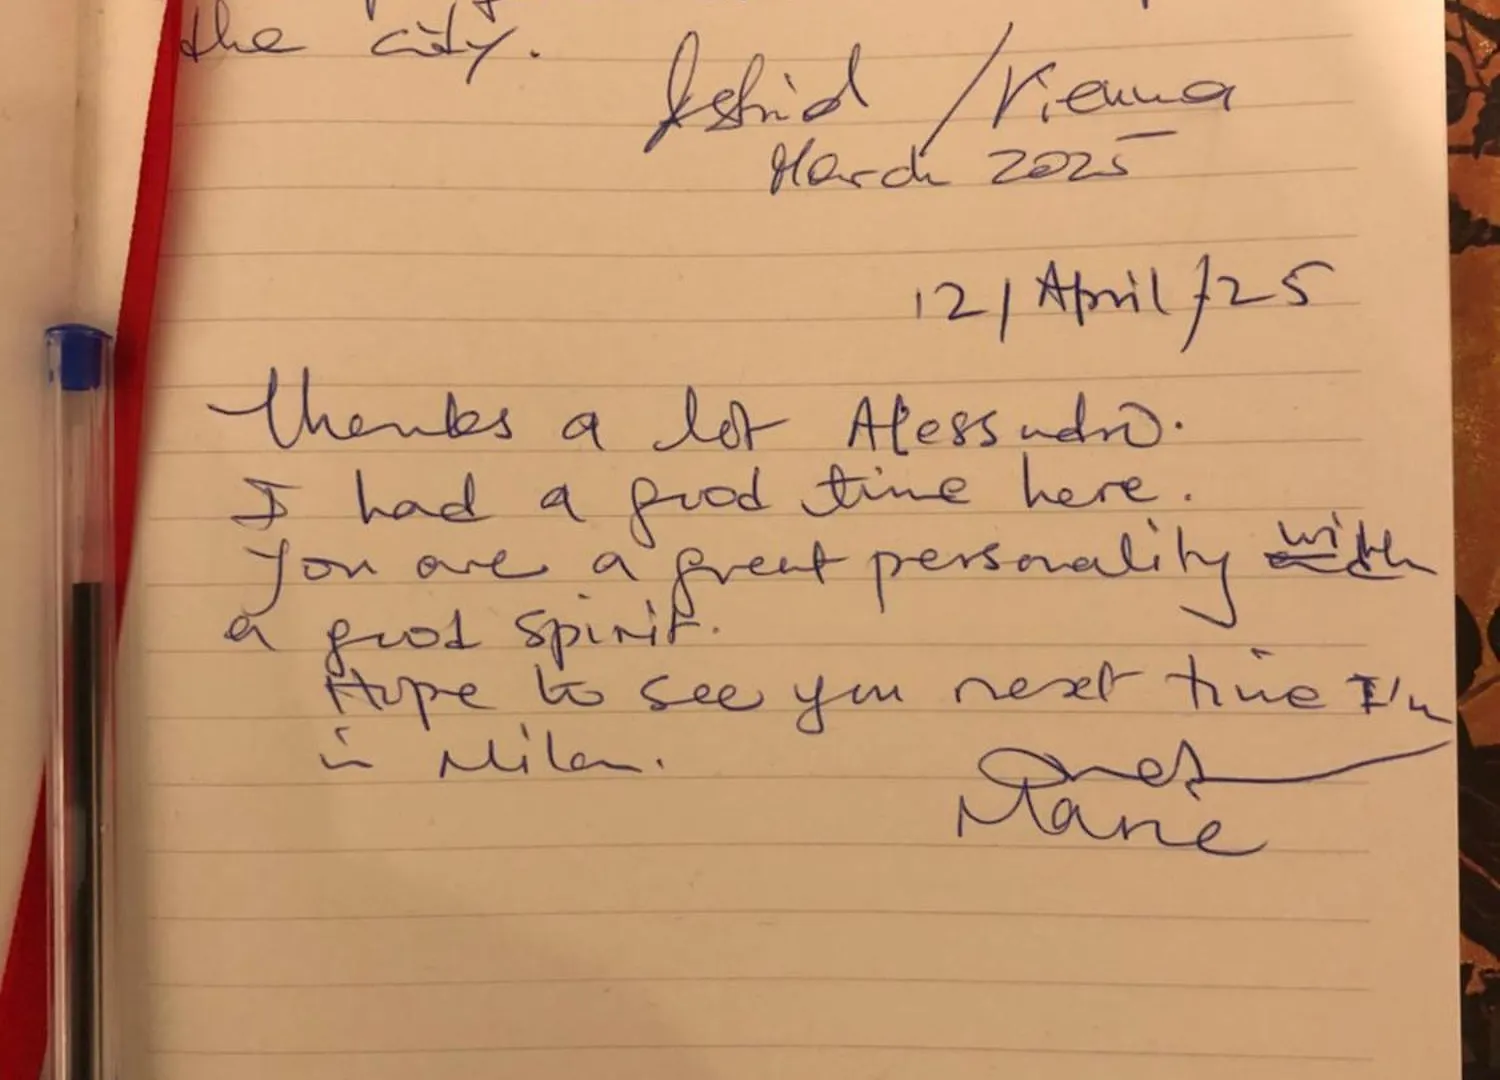 the city.
Astrid / Vienna
March 2025
12 / April / 25
Thanks a lot Alessandro.
I had a good time here.
You are a great personality with
a good spirit.
Hope to see you next time I'm
in Milan.
Marie